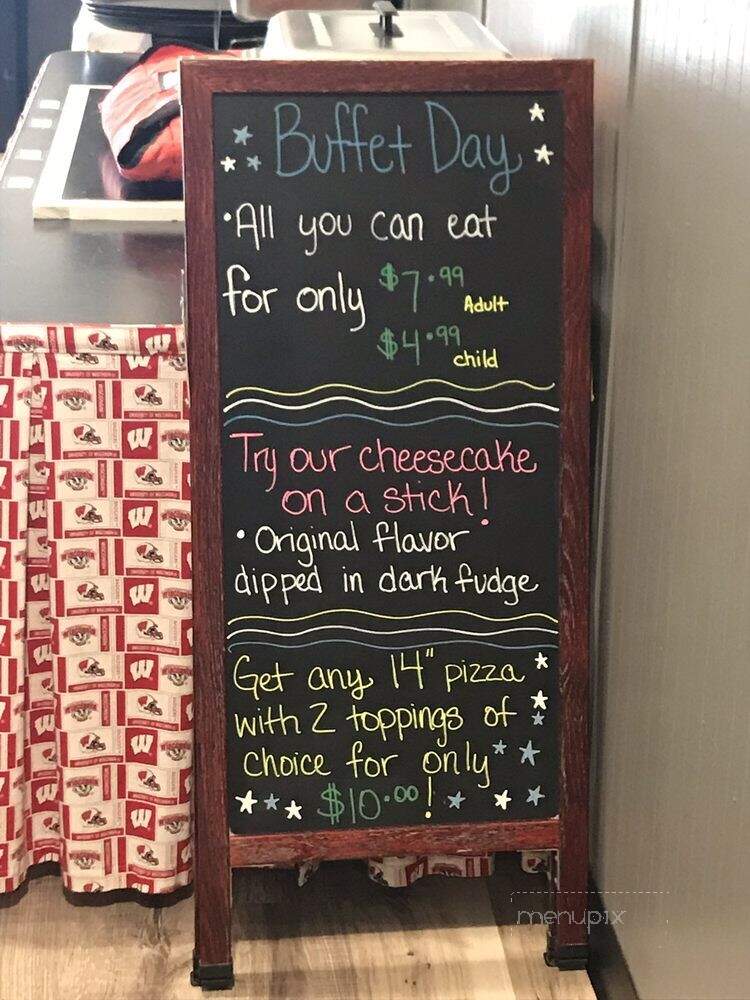 Buffet Day
•All you can eat
for only $7.99 Adult
$4.99 child
Try our cheesecake
on a stick!
• Original flavor
dipped in dark fudge
Get any 14" pizza
with 2 toppings of
choice for only
$10.00!
menupix